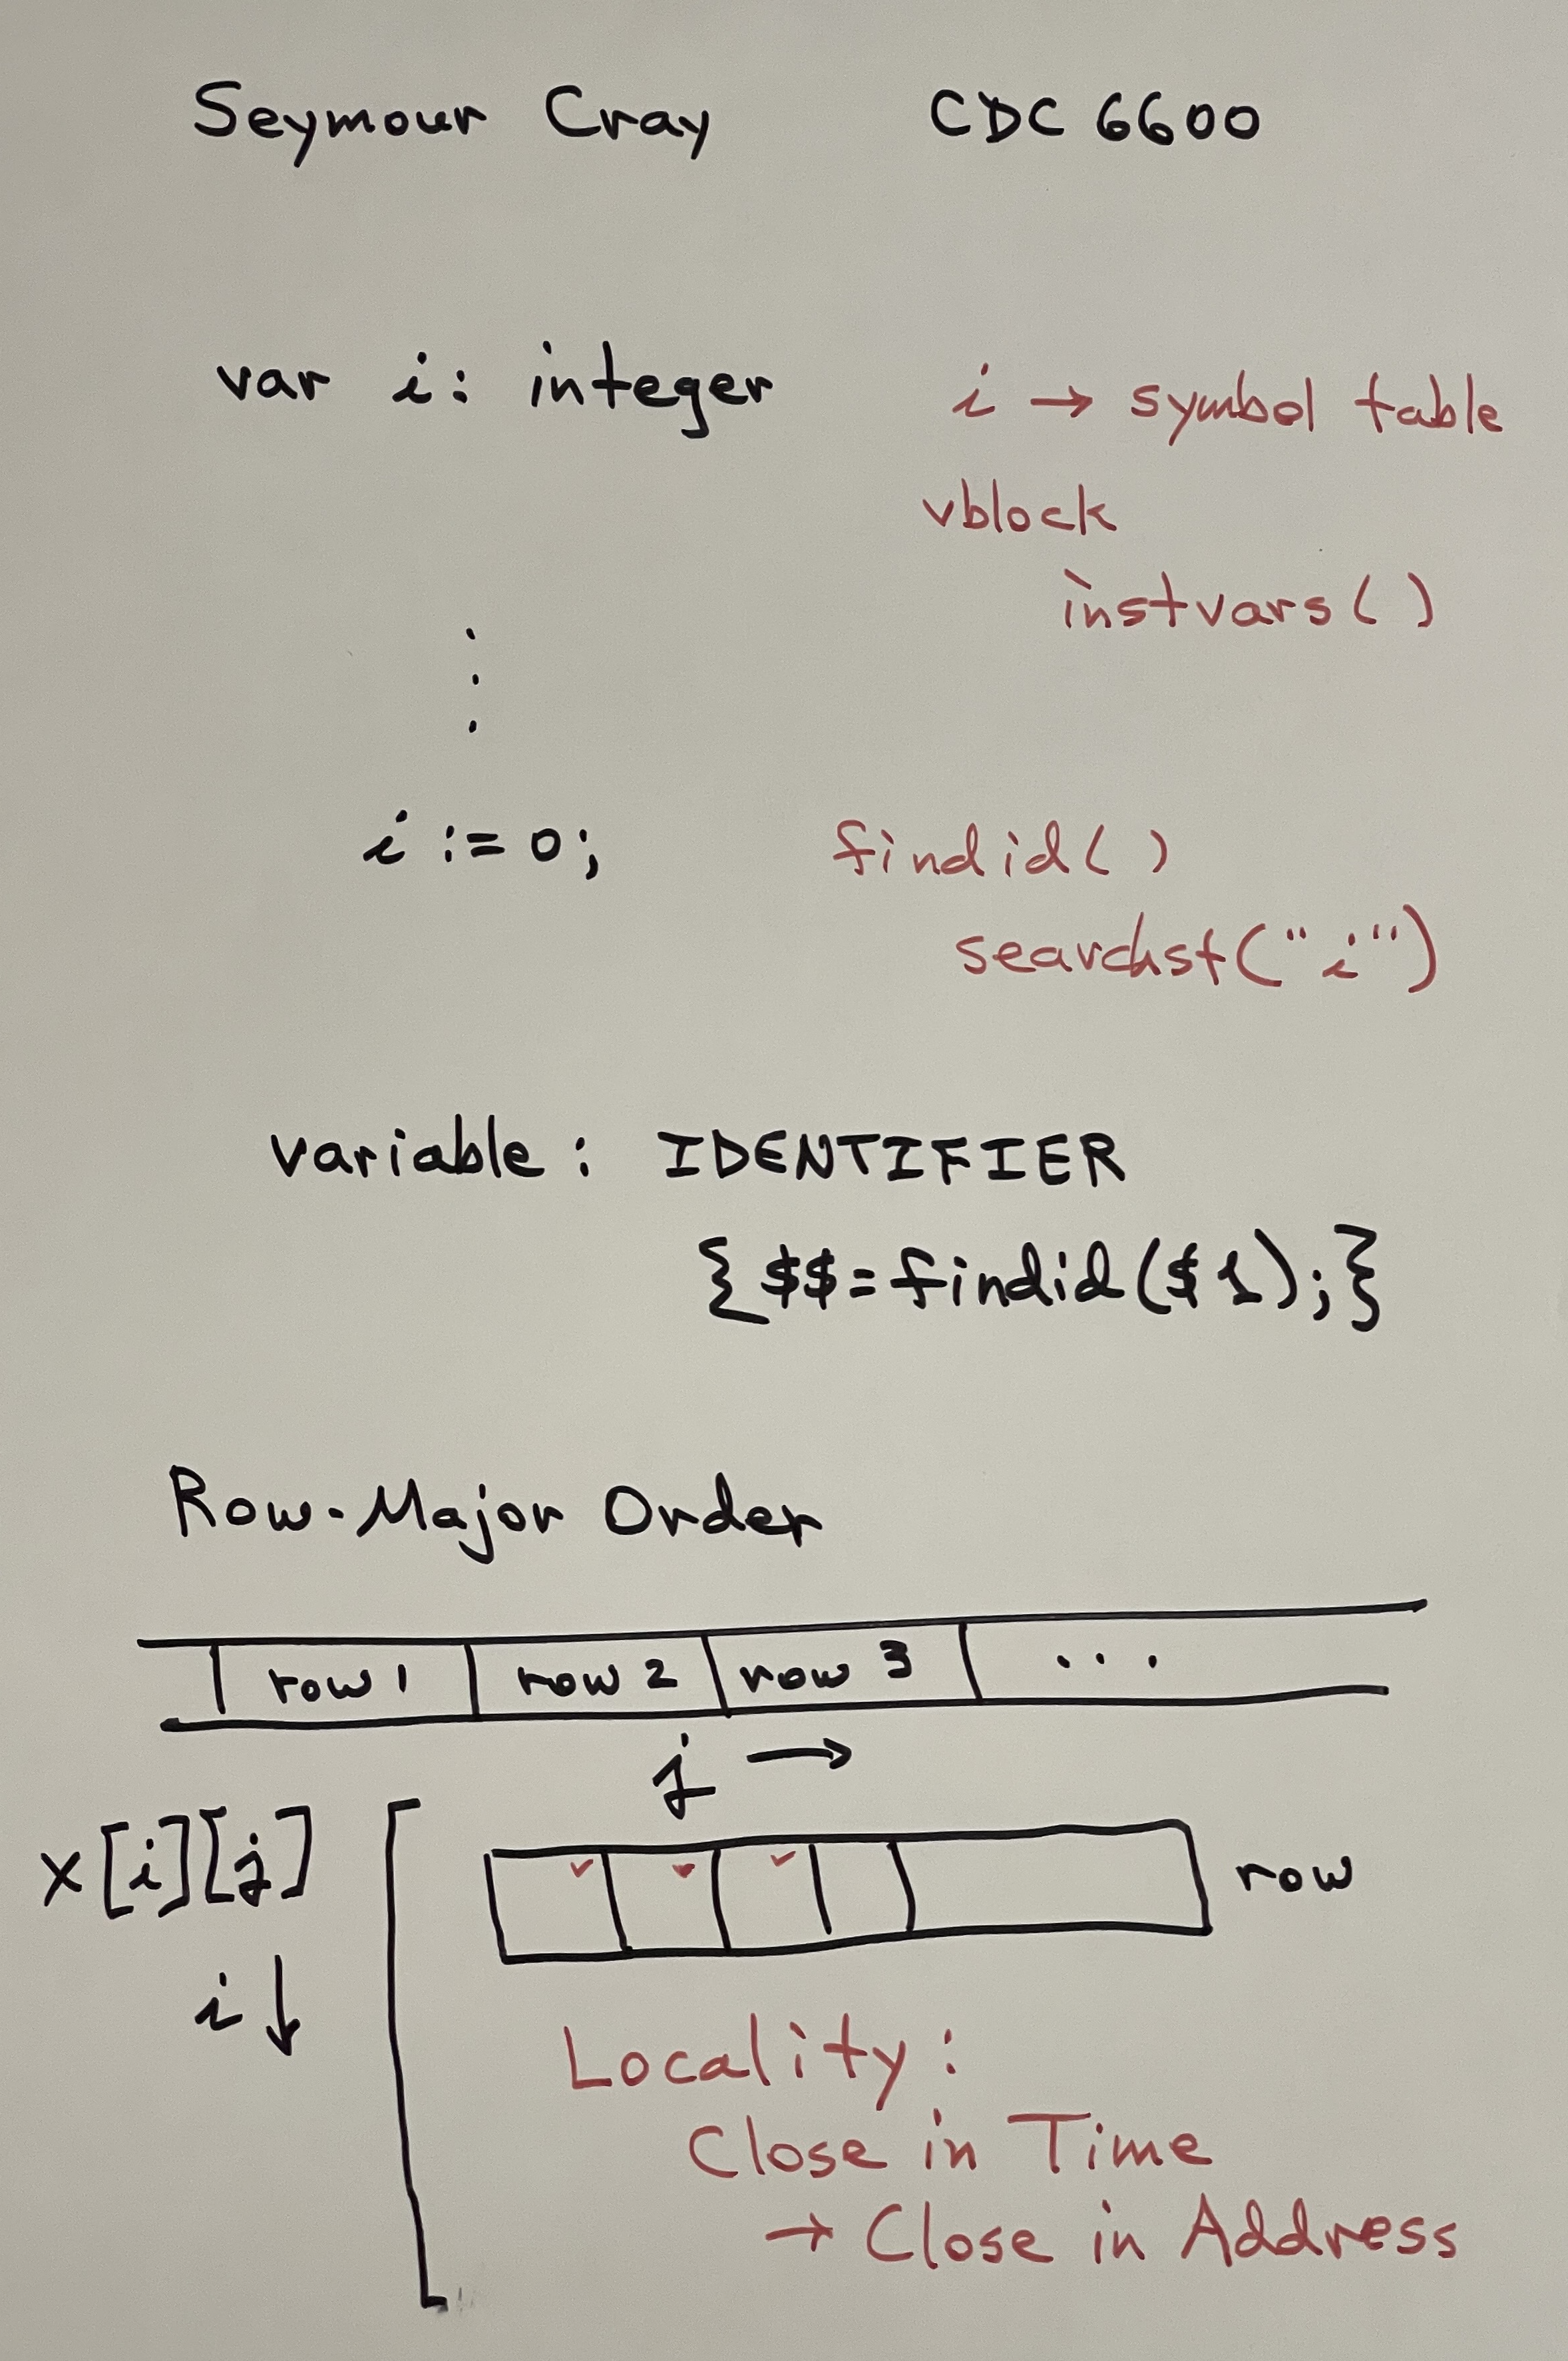 Seymour Cray CDC 6600
var i: integer i → symbol table
vblock
instvars( )
⋮
i := 0; findid( )
searchst("i")
variable: IDENTIFIER
{$$=findid($1);}
Row-Major Order
row 1 row 2 row 3 ...
j →
x[i][j] row
i ↓
Locality:
Close in Time
→ Close in Address